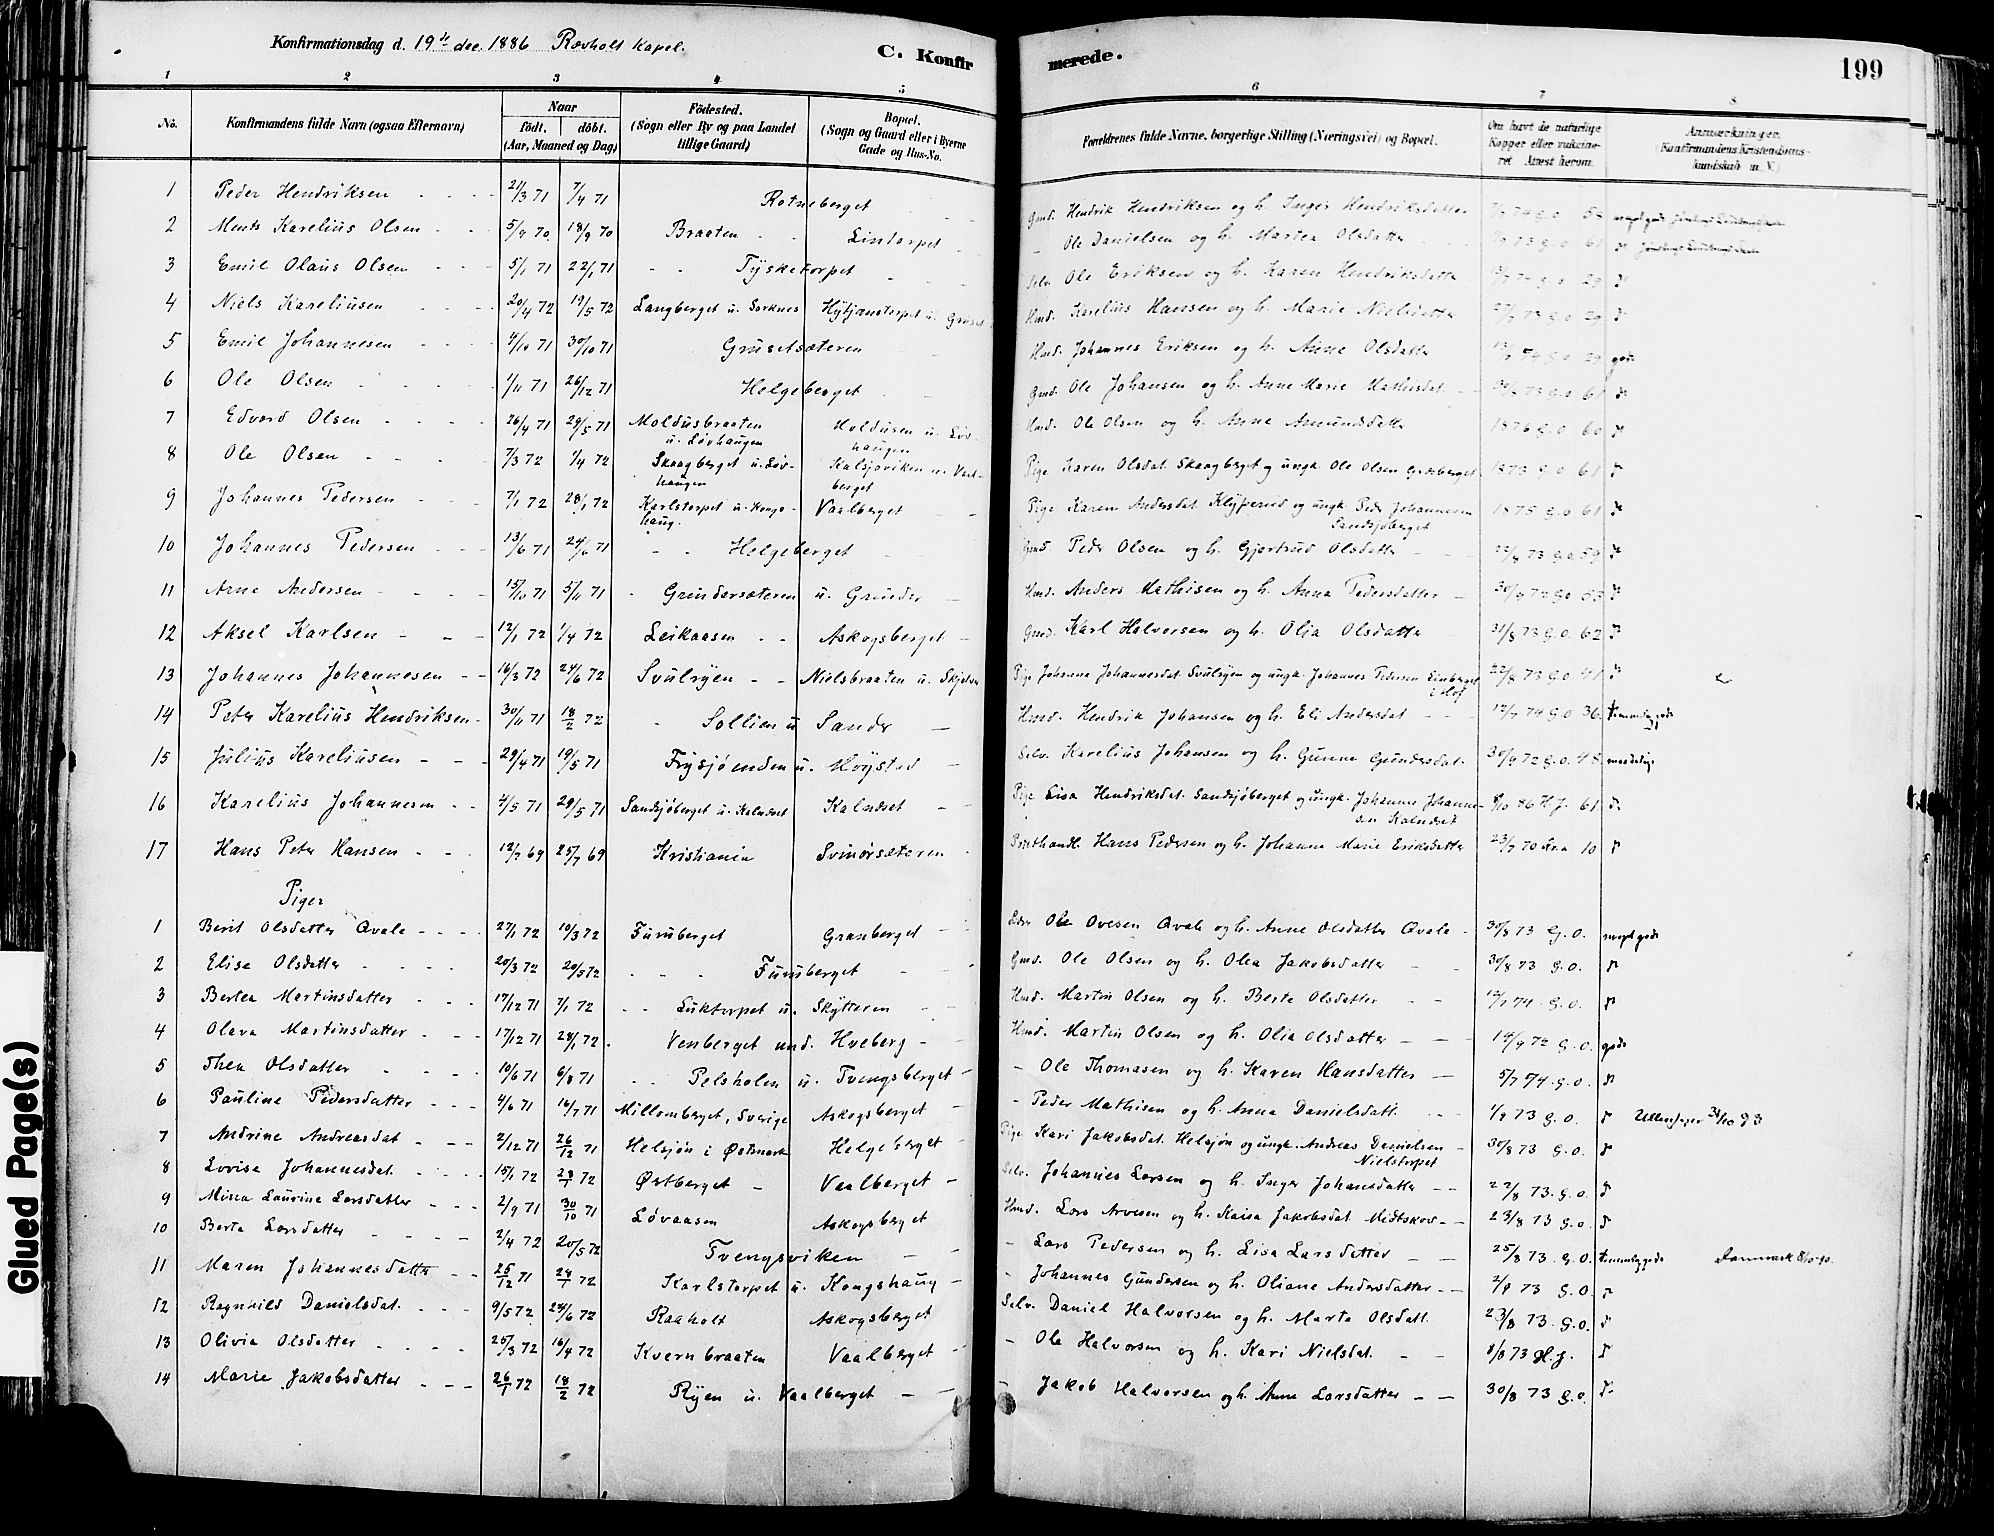 Konfirmationsdag d. 19de dec. 1886 Rævholt Kapel.
C. Konfirmerede.
199
1 2 3 4 5 6 7 8
No. Konfirmandens fulde Navn (ogsaa Efternavn) Naar födt. döbt. (Aar, Maaned og Dag) Födested. (Sogn eller By og paa Landet tillige Gaard) Bopæl. (Sogn og Gaard eller i Byerne Gade og Hus-No. Forældrenes fulde Navne, borgerlige Stilling (Næringsvei) og Bopæl. Om havt de naturlige Kopper eller vaksineret Attest herom. Anmærkninger. (Konfirmandens Kristendomskundskab m. V.)
1 Peder Hendriksen 21/3 71 7/4 71 Rotneberget Gmd. Hendrik Hendriksen og h. Inger Hendriksdatter
2 Ments Karelius Olsen 5/9 70 18/9 70 Braaten Lintorpet - Ole Danielsen og h. Martea Olsdatter 73 G.O 61
3 Emil Olaus Olsen 5/1 71 22/1 71 Tysketorpet Selv. Ole Eriksen og h. Karen Hendriksdatter
4 Niels Kareliusen 20/4 72 19/5 72 Langberget u. Sorknes Hytjanstorpet u. Gruset Hmd. Karelius Hansen og h. Marie Nielsdatter 27/7 73 G.O 29
5 Emil Johannesen 4/10 71 30/10 71 Grusetsæteren Hmd. Johannes Eriksen og h. Anne Olsdatter G.O 29 godt
6 Ole Olsen 1/11 71 26/12 71 Helgeberget Gmd. Ole Johansen og h. Anne Marie Mathisdat 73 G.O 61
7 Edvard Olsen 26/4 71 29/5 71 Moldusbraaten u. Løvhaugen Moldusen u. Løvhaugen Hmd. Ole Olsen og h. Anne Amundsdatter 1876 G.O 60
8 Ole Olsen 7/3 72 1/4 72 Skaagberget u. Løvhaugen Kalsjøviken u. Vaalberget Pige Karen Olsdat. Skaagberget og ungk. Ole Olsen 1873 G.O 61
9 Johannes Pedersen 7/1 72 28/1 72 Karlstorpet u. Kongshaug. Vaalberget Pige Karen Andersdat Klyperud og ungk. Peder Johannesen Sandsjøberget 1875 G.O 61
10 Johannes Pedersen 13/6 71 24/6 71 Helgeberget Gmd. Peder Olsen og h. Gjertrud Olsdatter 73 G.O 59
11 Arne Andersen 15/10 71 5/11 71 Grundersæteren u. Grunder Hmd. Anders Mathisen og h. Anna Pedersdatter 30/9 72 G.O 53
12 Aksel Karlsen 12/1 72 1/4 72 Leikaasen Askogsberget Gmd. Karl Halvorsen og h. Olia Olsdatter 31/8 73 G.O. 62
13 Johannes Johannesen 16/3 72 24/6 72 Svulryen Nielsbraaten u. Skjelver Pige Johanna Johannesdat. Svulryen og ungk. Johannes Pedersen i Hof 22/8 73 G.O 41
14 Peter Karelius Hendriksen 30/11 71 18/2 72 Sollien u Sander Hmd. Hendrik Johansen og h. Eli Andersdat 12/7 74 G.O 36. temmelig godt
15 Julius Kareliusen 29/4 71 19/5 71 Frysjøenden u. Moystad Selv. Karelius Johansen og h. Gunne Gundersdat. 30/9 72 G.O. 48 maadelig
16 Karelius Johannesen 4/5 71 29/5 71 Sandsjøberget u. Kalneset Kalneset Pige Lisa Hendriksdat. Sandsjøberget og ungk. Johannes Johannesen Kalneset 8/10 86 H.J. 61
17 Hans Peter Hansen 12/7 69 25/7 69 Kristiania Svinørsæteren Hans Pedersen og h. Johanna Marie Eriksdatter 23/7 70 Kr.a 10
Piger
1 Berit Olsdatter Qvale 27/1 72 10/3 72 Furuberget Granberget Ole Ovesen Qvale og h. Anne Olsdatter Qvale 30/8 73 G.O. meget godt
2 Elise Olsdatter 20/3 72 20/5 72 Furuberget Gmd. Ole Olsen og h. Olea Jakobsdatter 30/8 73 G.O.
3 Bertea Martinsdatter 17/12 71 7/1 72 Luktorpet u. Skytteren Hmd. Martin Olsen og h. Berte Olsdatter 12/7 74. G.O.
4 Olava Martinsdatter 17/12 71 28/1 72 Venberget und. Hveberg Hmd. Martin Olsen og h. Olia Olsdatter 14/9 72 G.O. godt
5 Thea Olsdatter 10/6 71 6/8 71 Pelsholen u. Tvengsberget - Ole Thomasen og h. Karen Hansdatter 5/7 74. G.O.
6 Pauline Pedersdatter 4/6 71 16/7 71 Millomberget, Sverige Askogsberget - Peder Mathisen og h. Anna Danielsdatt. 1/9 73 G.O. Ullensager 24/10 93
7 Andrine Andreasdat 2/12 71 26/12 71 Helsjøn i Østmark Helgeberget Pige Kari Jakobsdat. Helsjøn og ungk. Andreas Danielsen Nielstorpet 30/8 73 G.O.
8 Lovisa Johannesdat. 15/1 72 28/1 72 Østberget Vaalberget Selv. Johannes Larsen og h. Inger Johansdatter 22/8 73. G.O.
9 Mina Laurine Larsdatter 2/9 71 30/10 71 Løvaasen Askogsberget Hmd. Lars Arvesen og h. Kaisa Jakobsdat Midtskov 23/8 73 G.O.
10 Berta Larsdatter 2/4 72 20/5 72 Tvengsviken - Lars Pedersen og h. Lisa Larsdatter 25/8 73. G.O. temmelig godt Danmark 8/10 90.
11 Maren Johannesdatter 25/12 71 24/1 72 Karlstorpet u. Kongshaug - Johannes Gundersen og h. Oliane Andersdatter 2/9 73 G.O
12 Ragnhild Danielsdat. 9/5 72 24/6 72 Raaholt Askogsberget Selv. Daniel Halvorsen og h. Marta Olsdatt. 23/8 73. G.O.
13 Olivia Olsdatter 25/3 72 16/4 72 Kvernbraaten Vaalberget - Ole Halvorsen og h. Kari Nielsdat. 8/8 73 H.J.
14 Marie Jakobsdatter 26/1 72 18/2 72 Ryen u. Vaalberget - Jakob Halvorsen og h. Anne Larsdatter 30/8 73 G.O.
Glued Page(s)